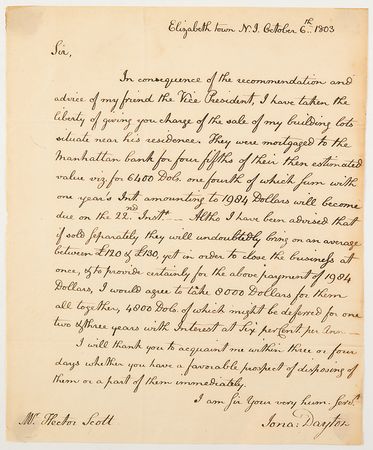 Elizabeth town N.J. October 6.th 1803
Sir,
In consequence of the recommendation and
advice of my friend the Vice President, I have taken the
liberty of giving you charge of the sale of my building lots
situate near his residence. They were mortgaged to the
Manhattan bank for four fifths of their then estimated
value viz. for 6400 Dols. one fourth of which sum with
one year's Int. amounting to 1984 Dollars will become
due on the 22.nd Inst.— Altho I have been advised that
if sold separately they will undoubtedly bring on an average
between £120 & £130 yet in order to close the business at
once, & to provide certainly for the above payment of 1984
Dollars, I would agree to take 8000 Dollars for them
all together, 4800 Dols. of which might be deferred for one
two & three years with Interest at Six per Cent. per Ann—
I will thank you to acquaint me within three or four
days whether you have a favorable prospect of disposing of
them or a part of them immediately.
I am Sir Your very hum. Servt.
Mr. Hector Scott
Jona: Dayton